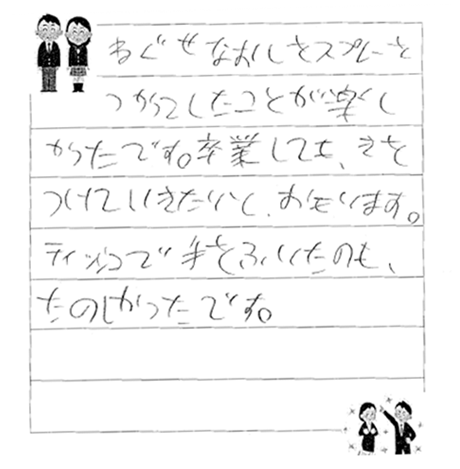 ねぐせなおしをスプレーを
つかってしたことが楽し
かったです。卒業しても、きを
つけていきたいと、おもいます。
ティッシュで手をふいたのも、
たのしかったです。